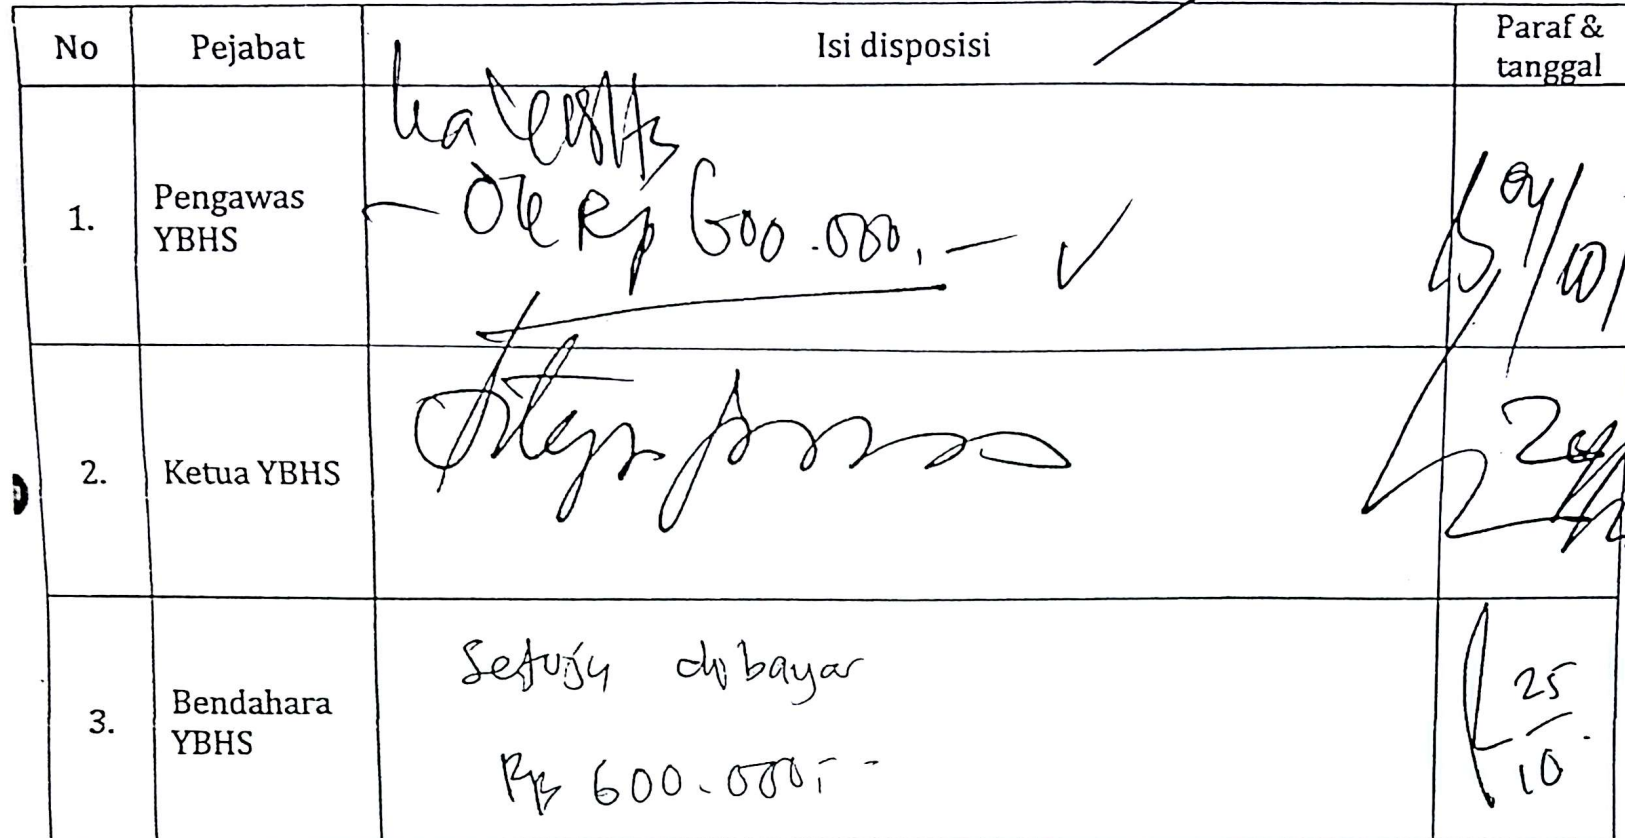 No Pejabat Isi disposisi Paraf &
tanggal
1. Pengawas
YBHS
Ka YBHS
- Ok Rp 600.000,- ✓
2. Ketua YBHS
Setuju proses
3. Bendahara
YBHS
Setuju dibayar
Rp 600.000,-
25
10